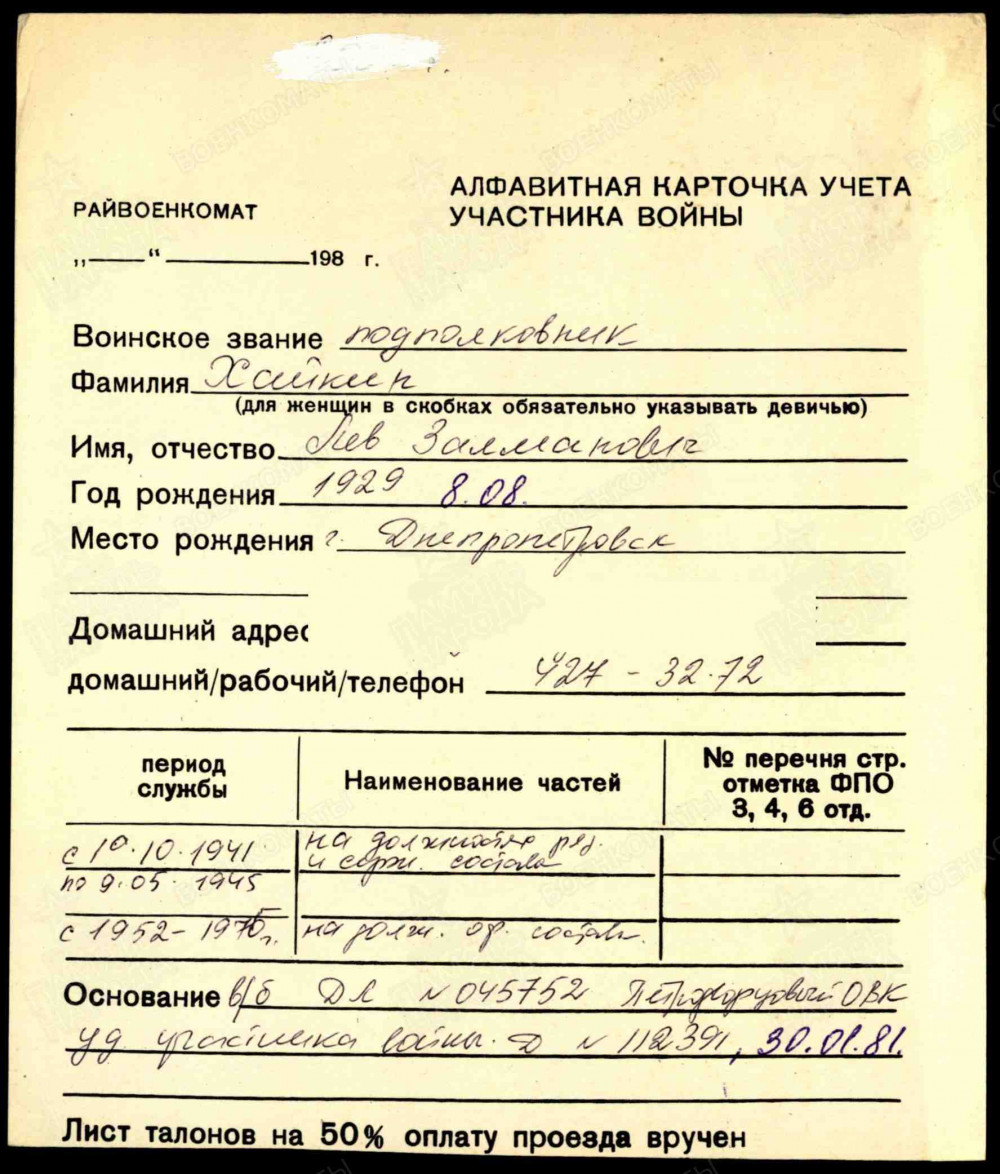 АЛФАВИТНАЯ КАРТОЧКА УЧЕТА
УЧАСТНИКА ВОЙНЫ
РАЙВОЕНКОМАТ
„——“ ————198 г.
Воинское звание подполковник
Фамилия Хайкин
(для женщин в скобках обязательно указывать девичью)
Имя, отчество Лев Залманович
Год рождения 1929 8.08.
Место рождения г. Днепропетровск
Домашний адрес
домашний/рабочий/телефон 427-32-72
период службы
Наименование частей
№ перечня стр.
отметка ФПО
3, 4, 6 отд.
с 10.10.1941
на должностях ряд.
и серж. состава
по 9.05.1945
с 1952-1975г.
на должн. оф. состава.
Основание в/б ДЛ №045752 Петродворцовый ОВК
уд. участника войны. Д № 112391, 30.01.81.
Лист талонов на 50% оплату проезда вручен
ВОЕНКОМАТЫ
ПАМЯТЬ НАРОДА